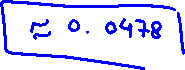 ≈ 0.0478